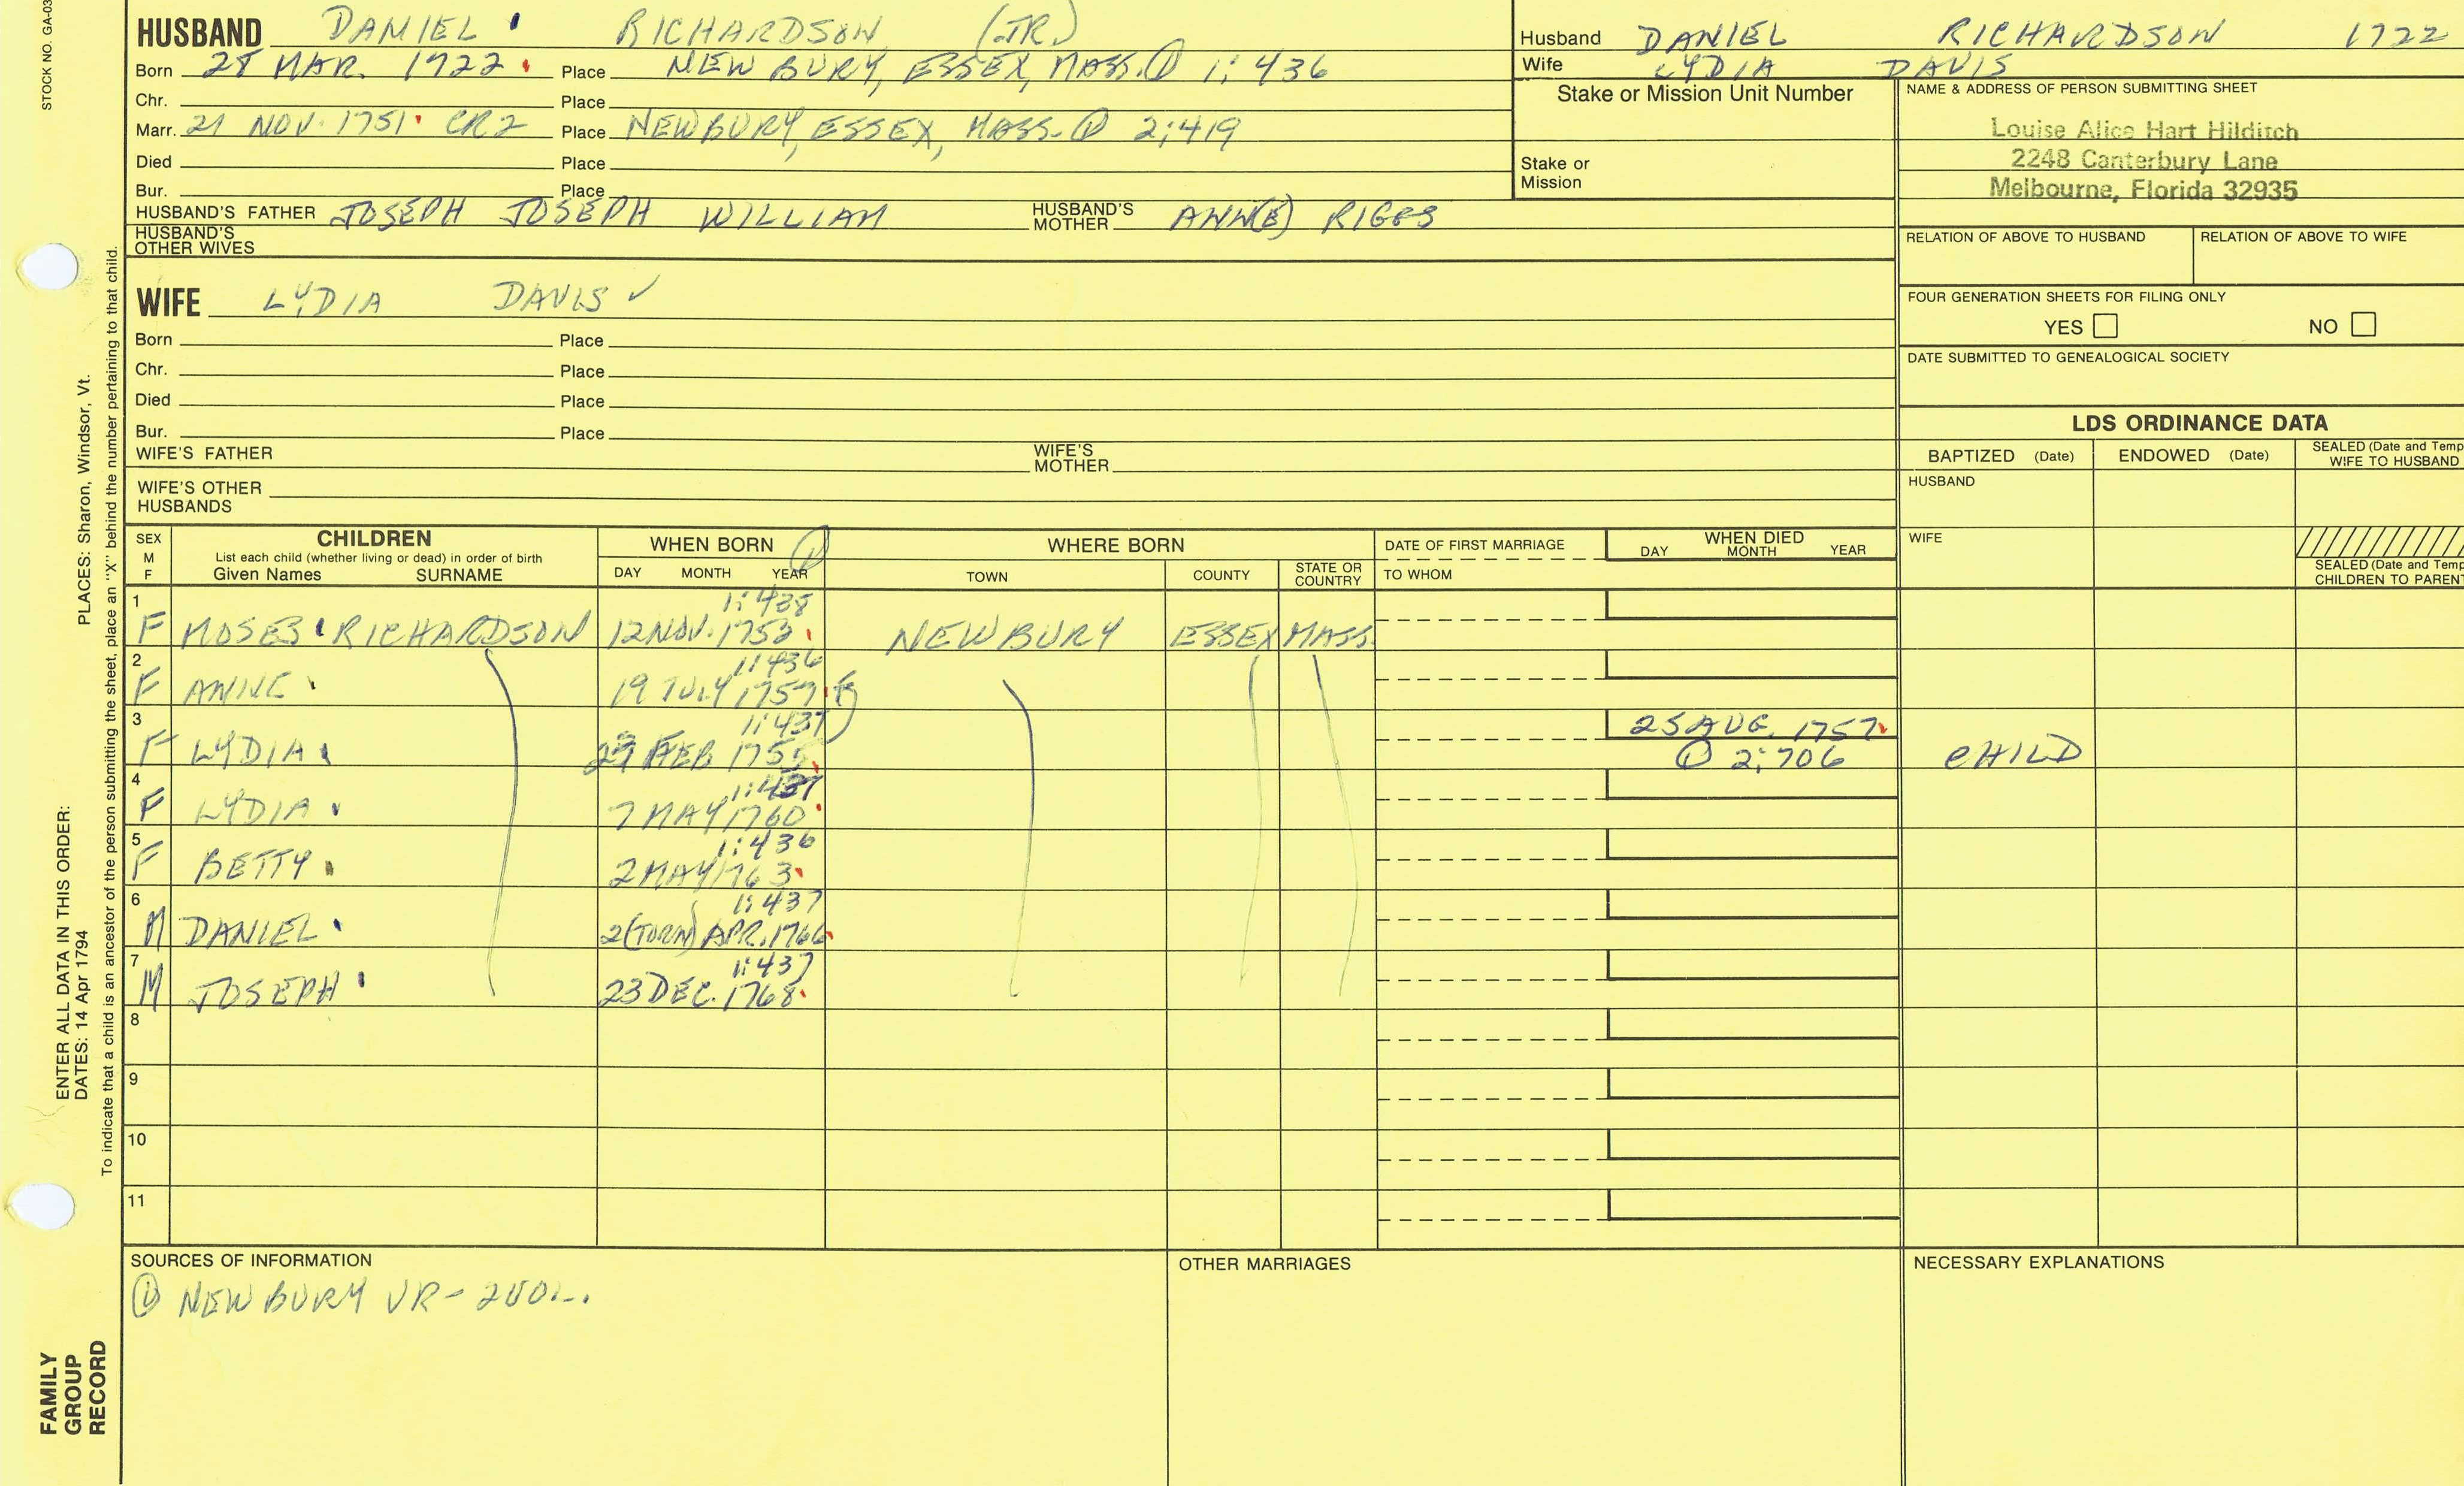 STOCK NO. GA-03
HUSBAND DANIEL RICHARDSON (JR)
Born 28 MAR. 1722 Place NEWBURY, ESSEX, MASS. ① 1:436
Chr. Place
Marr. 21 NOV. 1751 CR2 Place NEWBURY, ESSEX, MASS. ① 2:419
Died Place
Bur. Place
HUSBAND'S FATHER JOSEPH JOSEPH WILLIAM HUSBAND'S MOTHER ANN(E) RIGGS
HUSBAND'S OTHER WIVES
Husband DANIEL RICHARDSON 1722
Wife LYDIA DAVIS
Stake or Mission Unit Number
Stake or Mission
NAME & ADDRESS OF PERSON SUBMITTING SHEET
Louise Alice Hart Hilditch
2248 Canterbury Lane
Melbourne, Florida 32935
RELATION OF ABOVE TO HUSBAND RELATION OF ABOVE TO WIFE
FOUR GENERATION SHEETS FOR FILING ONLY
YES NO
DATE SUBMITTED TO GENEALOGICAL SOCIETY
WIFE LYDIA DAVIS ✓
Born Place
Chr. Place
Died Place
Bur. Place
WIFE'S FATHER WIFE'S MOTHER
WIFE'S OTHER HUSBANDS
LDS ORDINANCE DATA
BAPTIZED (Date) ENDOWED (Date) SEALED (Date and Temp
WIFE TO HUSBAND
HUSBAND
WIFE
SEALED (Date and Temp
CHILDREN TO PARENT
SEX M F
CHILDREN
List each child (whether living or dead) in order of birth
Given Names SURNAME
WHEN BORN ①
DAY MONTH YEAR
WHERE BORN
TOWN COUNTY STATE OR COUNTRY
DATE OF FIRST MARRIAGE
TO WHOM
WHEN DIED
DAY MONTH YEAR
1 1:438
F MOSES RICHARDSON 12 NOV. 1753 NEWBURY ESSEX MASS.
2 1:436
F ANNE 19 JULY 1757
3 1:437 25 AUG. 1757
F LYDIA FEB 1755 ① 2:706 CHILD
4 1:437
F LYDIA 7 MAY 1760
5 1:436
F BETTY 2 MAY 1763
6 1:437
M DANIEL 2(TORN) APR. 1766
7 1:437
M JOSEPH 23 DEC. 1768
8
9
10
11
SOURCES OF INFORMATION
① NEWBURY VR-
OTHER MARRIAGES
NECESSARY EXPLANATIONS
ENTER ALL DATA IN THIS ORDER:
DATES: 14 Apr 1794 PLACES: Sharon, Windsor, Vt.
To indicate that a child is an ancestor of the person submitting the sheet, place an "X" behind the number pertaining to that child.
FAMILY
GROUP
RECORD